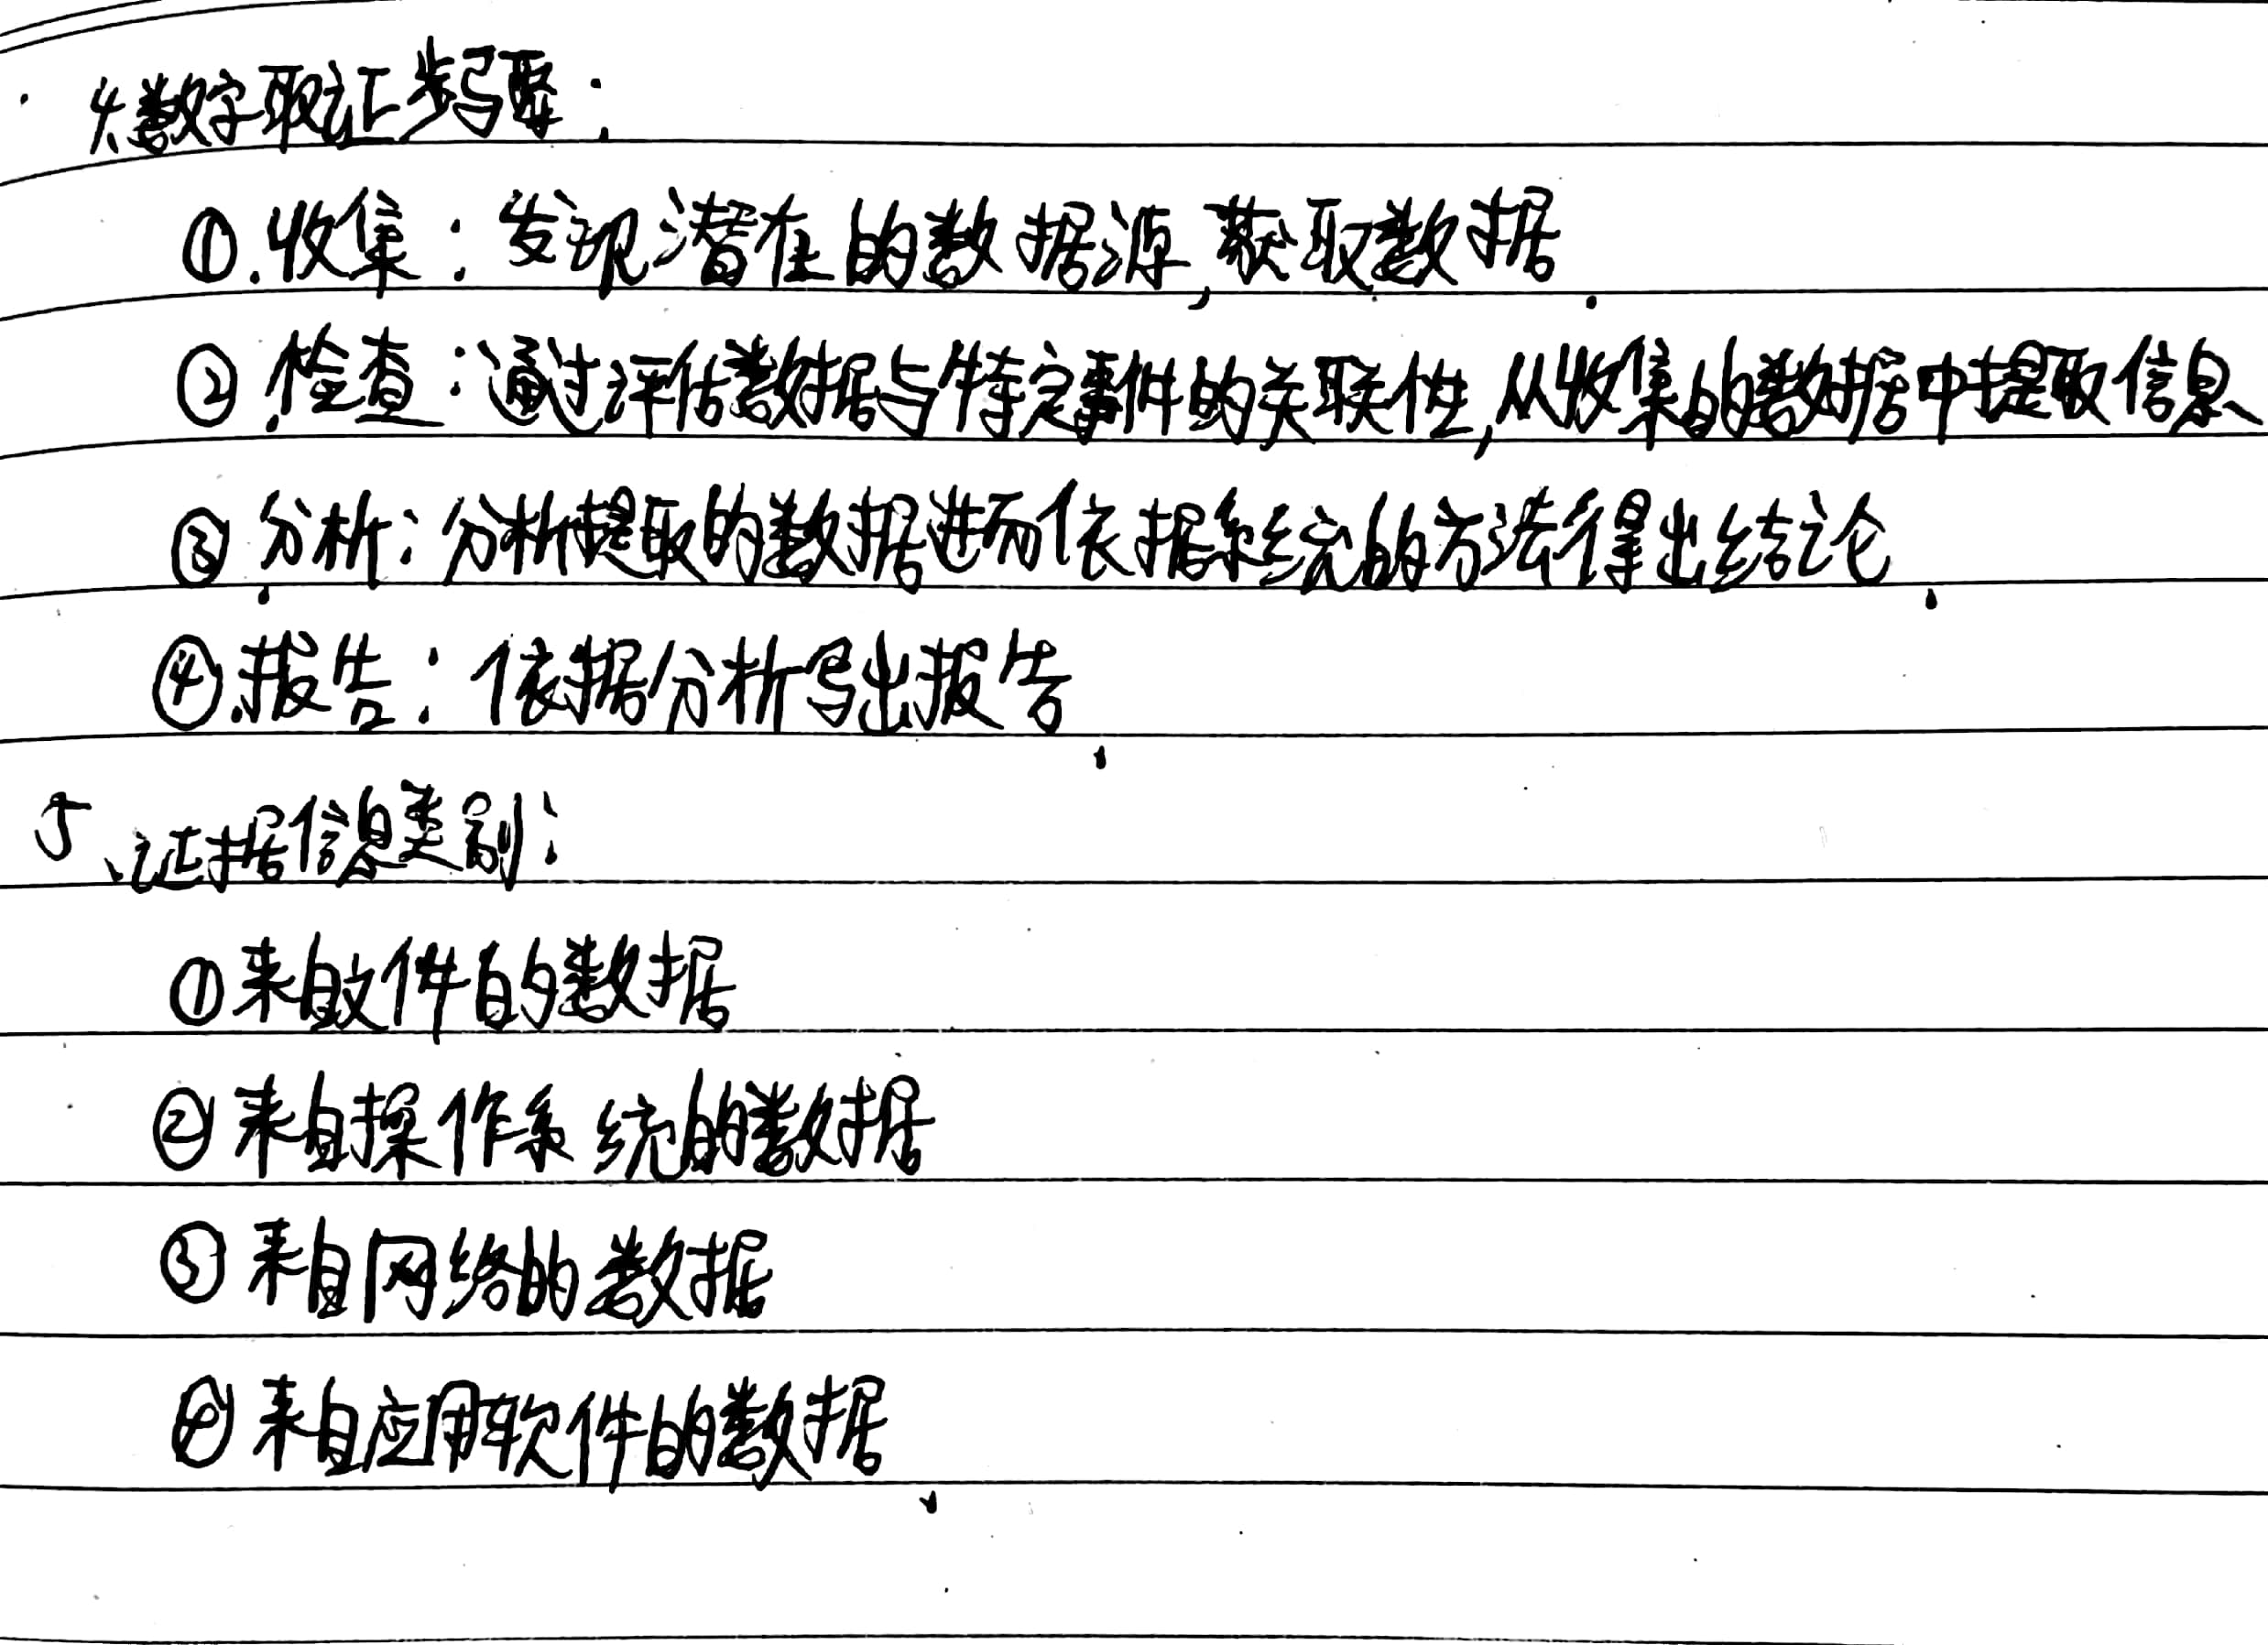 4.数字取证步骤:
①.收集:发现潜在的数据源,获取数据.
②.检查:通过评估数据与特定事件的关联性,从收集的数据中提取信息
③.分析:分析提取的数据进而依据系统的方法得出结论.
④.报告:依据分析写出报告.
5、证据信息类别:
①来自文件的数据
②来自操作系统的数据
③来自网络的数据
④来自应用软件的数据.